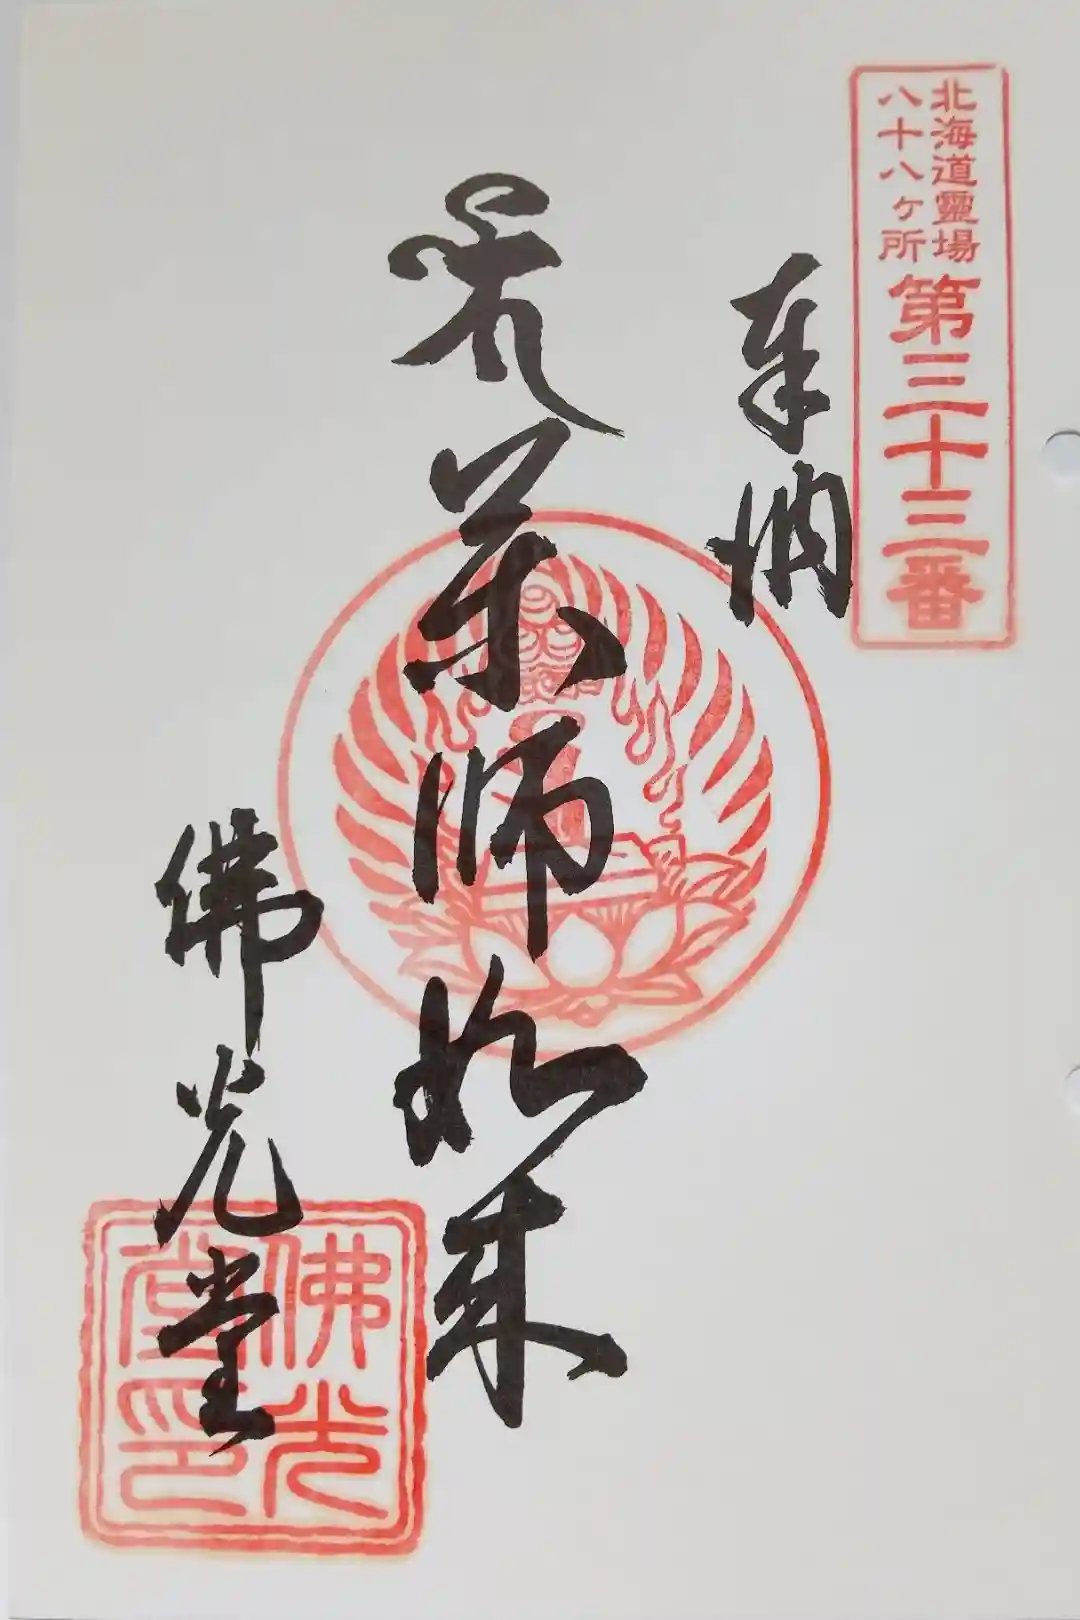 北海道靈場
八十八ヶ所
第三十三番
奉納
薬師如来
佛光堂
佛光
堂印